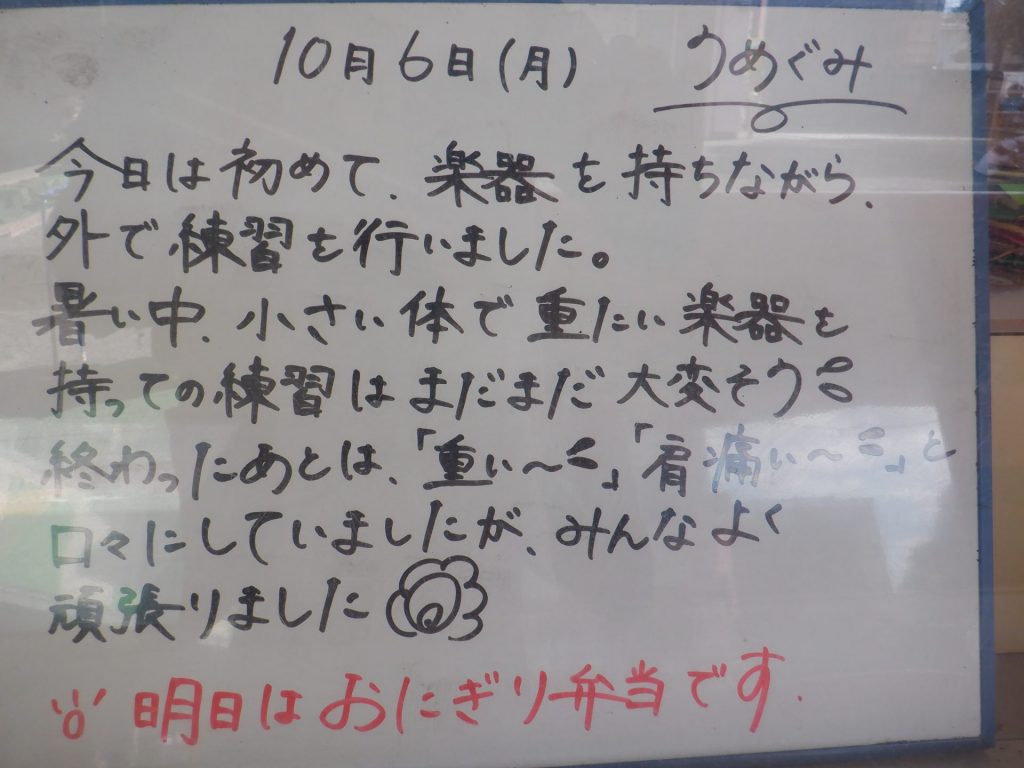 10月6日(月) うめぐみ
今日は初めて、楽器を持ちながら、
外で練習を行いました。
暑い中、小さい体で重たい楽器を
持っての練習はまだまだ大変そう
終わったあとは、「重い〜」「肩痛い〜」と
口々にしていましたが、みんなよく
頑張りました
明日はおにぎり弁当です.